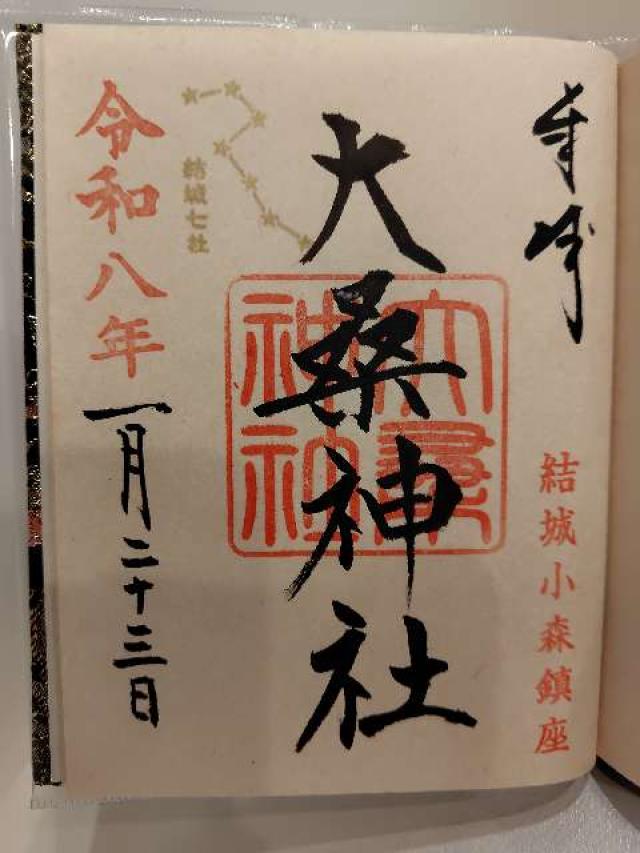 奉拝
結城小森鎮座
大桑神社
大桑神社
結城七社
令和八年
一月二十三日